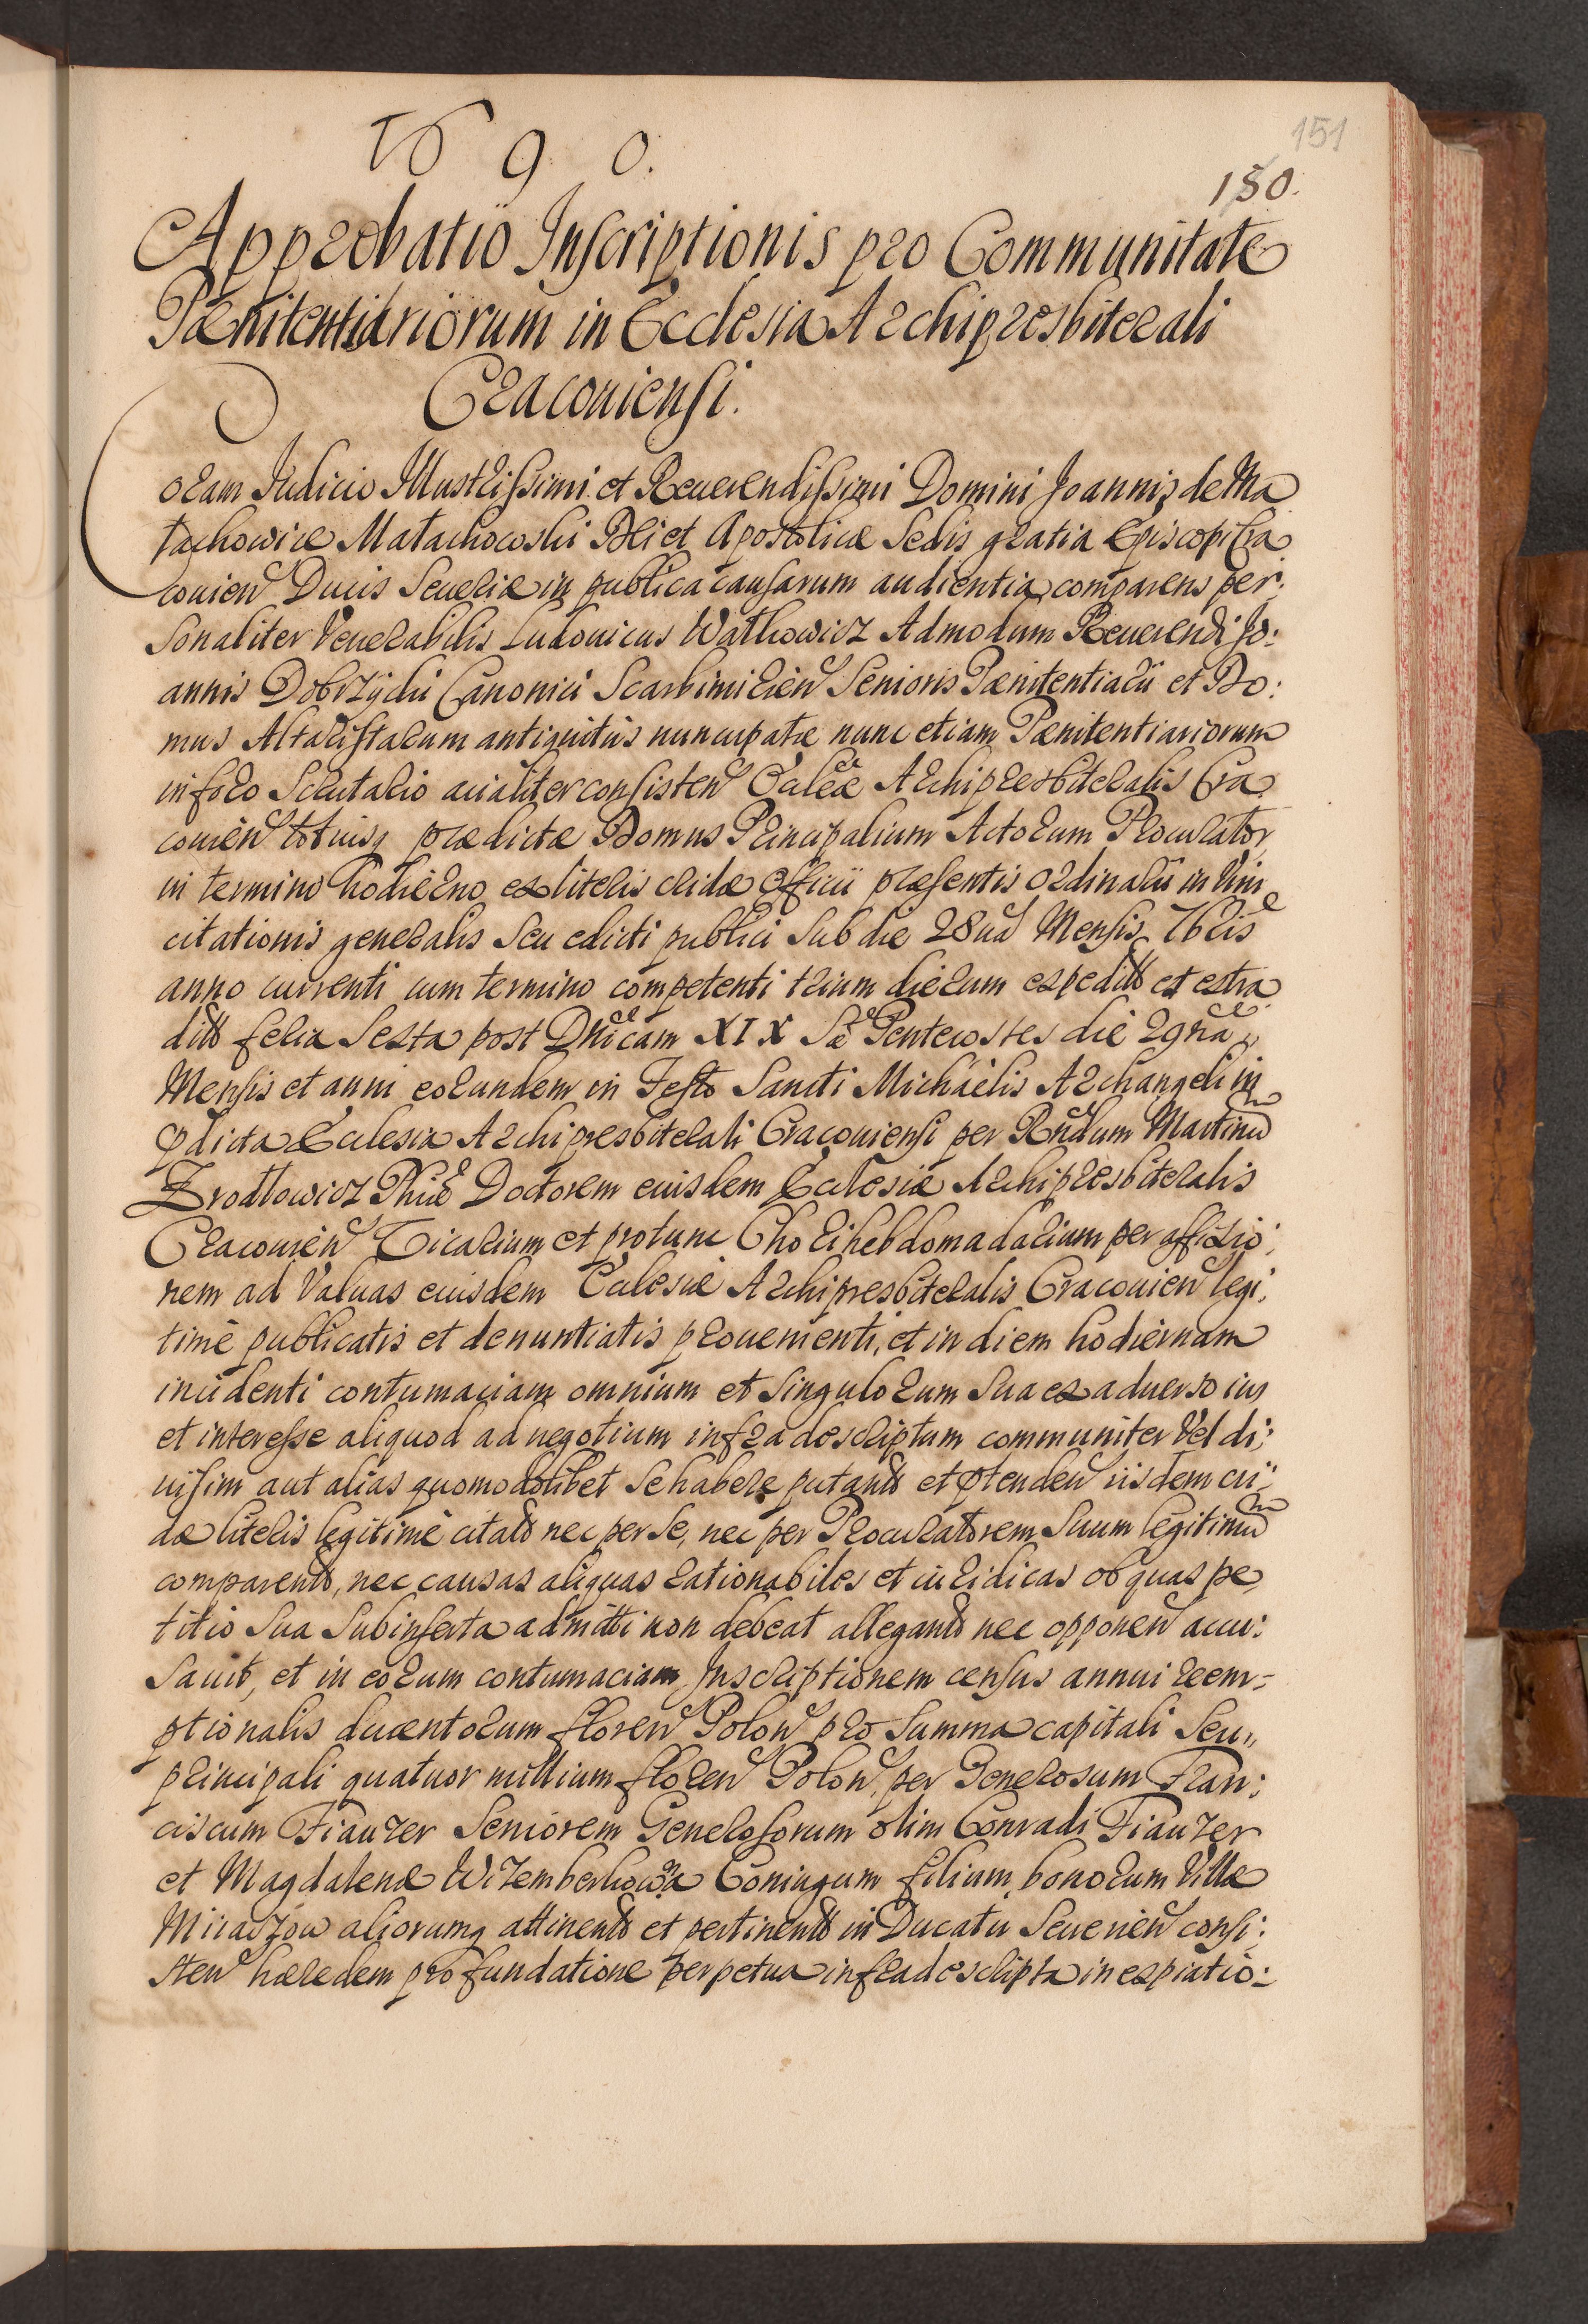 1690.
151
150.
Approbatio Inscriptionis pro Communitate
Pænitentiariorum in Ecclesia Archipresbiterali
Cracouiensi.
Coram Iudicio Illustrissimi et Reuerendissimi Domini Joannis de Ma
łachowice Małachowski Dei et Apostolicæ Sedis gratia Episcopi Cra
couien Ducis Seueriæ in publica causarum audientia comparens per:
sonaliter Venerabilis Ludouicus Wathowicz Admodum Reuerendi Jo:
annis Dobrzychi Canonici Scarbimirien Senioris Pænitentiarii et Do:
mus Altaristarum antiquitus nuncupatæ nunc etiam Pænitentiariorum
in foro Scrutario aciæliter consisten Eccleæ Archipresbiteralis Cra
couien totiusq prædictæ Domus Principalium Actorum Procurator
in termino hodierno ex literis cridæ Officii præsentis Ordinarii in vim
citationis generalis seu edicti publici sub die 28ua Mensis 7bris
anno currenti cum termino competenti trium dierum expeditis et extra
ditis feria sexta post Dnicam XIX Sæ Pentecostes die 29na
Mensis et anni eorundem in Festo Sancti Michaelis Archangeli in
pdicta Ecclesia Archipresbiterali Cracouiensi per Rndum Martinu
Zrodłowicz Phiæ Doctorem eiusdem Ecclesiæ Archipresbiteralis
Cracouien Vicarium et protunc Chori hebdomadarium per affixio:
nem ad Valuas eiusdem Ecclesiæ Archipresbiteralis Cracouien legi:
time publicatis et denuntiatis proueniente, et in diem hodiernam
incidenti contumaciam omnium et singulorum sua ex aduerso ius
et interesse aliquod ad negotium infra descriptum communiter Vel di:
uisim aut alias quomodolibet se habere putantis et ptenden iisdem cri:
dæ literis legitime citatis nec per se, nec per Procuratorem suum legitimu
comparentis, nec causas aliquas rationabiles et iuridicas ob quas pe
titio sua subinserta admitti non debeat allegantis nec opponen accu:
sauit, et in eorum contumaciam Inscriptionem census annui reem-
ptionalis ducentorum floren Polon pro summa capitali seu
principali quatuor millium floren Polon per Generosum Fran:
ciscum Fiauzer Seniorem Generosorum olim Conradi Fiauzer
et Magdalenæ Wizemberkowna Coniugum filium, bonorum Villæ
Mirarzow aliorumq attinentis et pertinentis in Ducatu Seuerien consi:
sten hæredem pro fundatione perpetua infradescripta in expiatio: